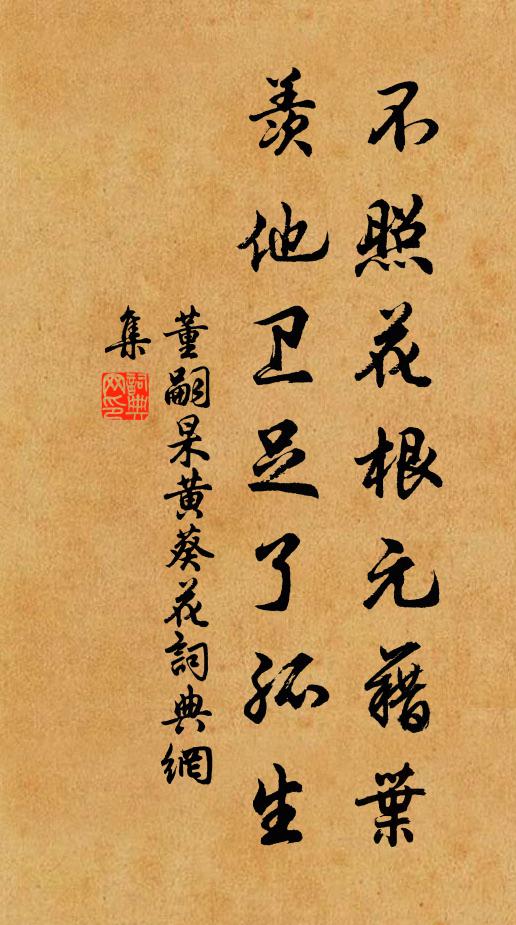 不照花根元藉葉
羨他卫足了孤生
董嗣杲黄葵花詞典網
集
詞典网印